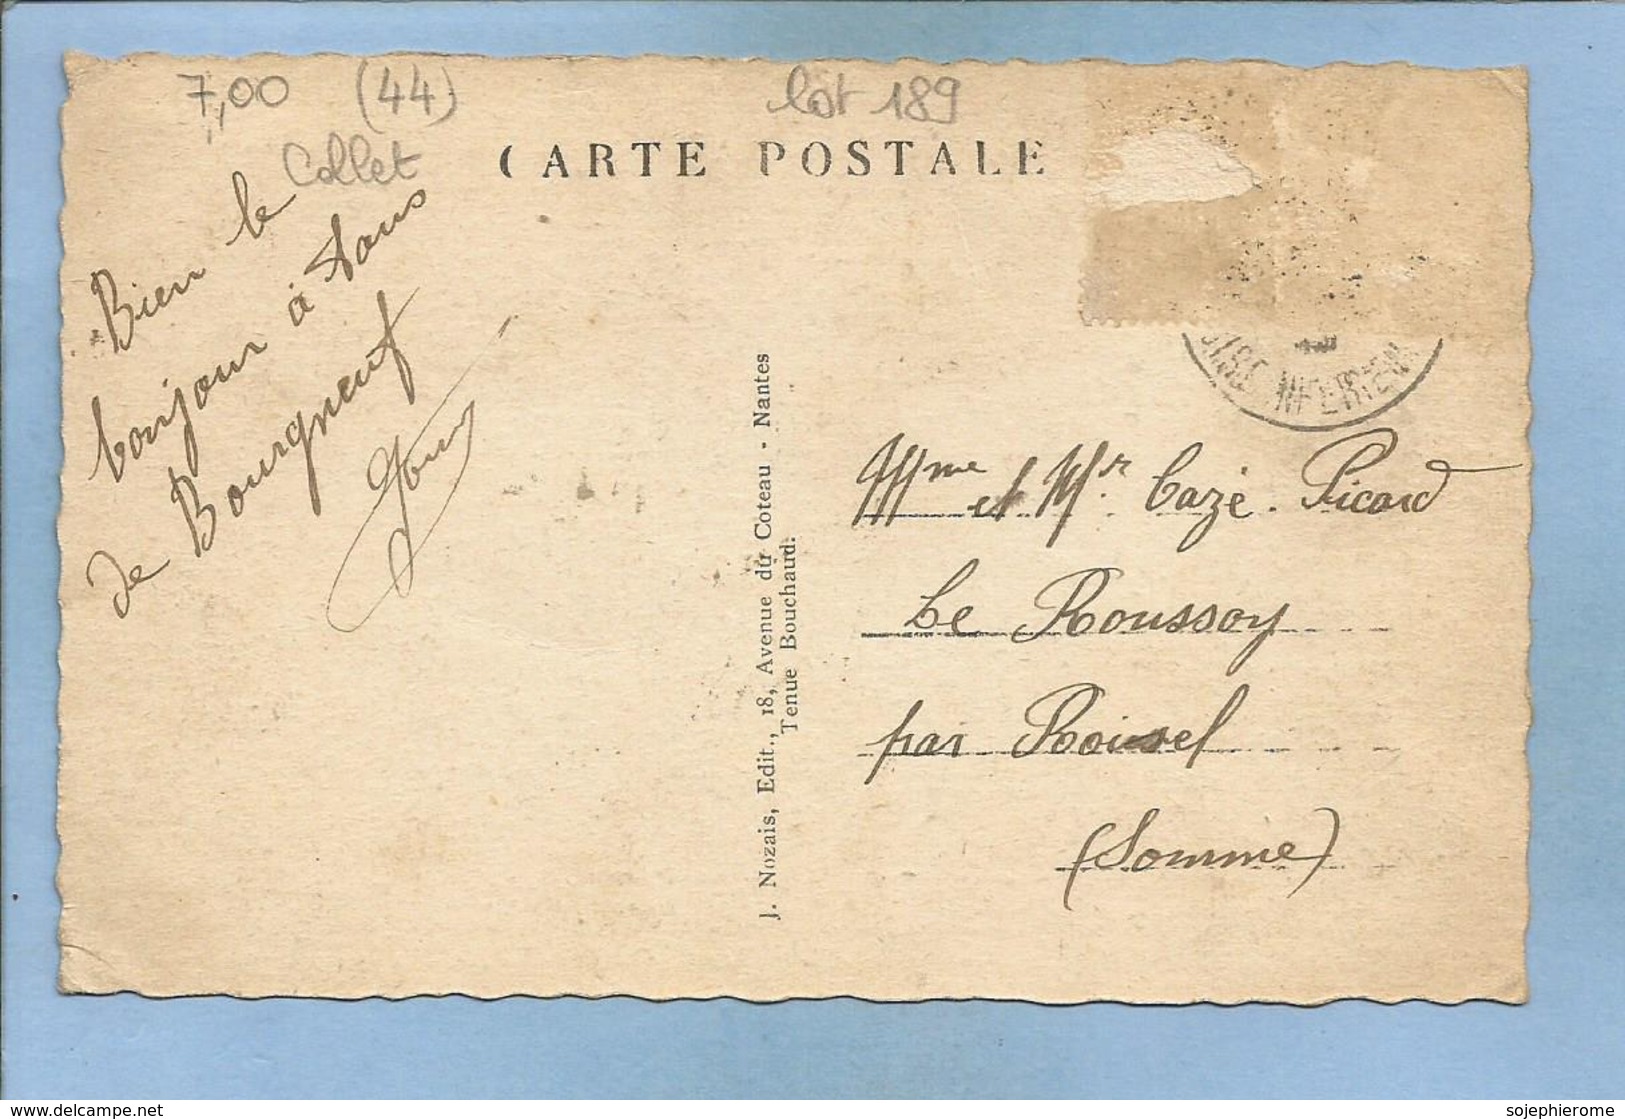 7,00 (44) lot 189
Collet
CARTE POSTALE
Bien le
bonjour à tous
de Bourgneuf
J. Nozais, Edit., 18, Avenue du Coteau - Nantes
Tenue Bouchaud.
INFERIEU
Mme et Mr. Cazé-Picard
Le Roussoy
par Roisel
(Somme)
www.delcampe.net
sojephierome